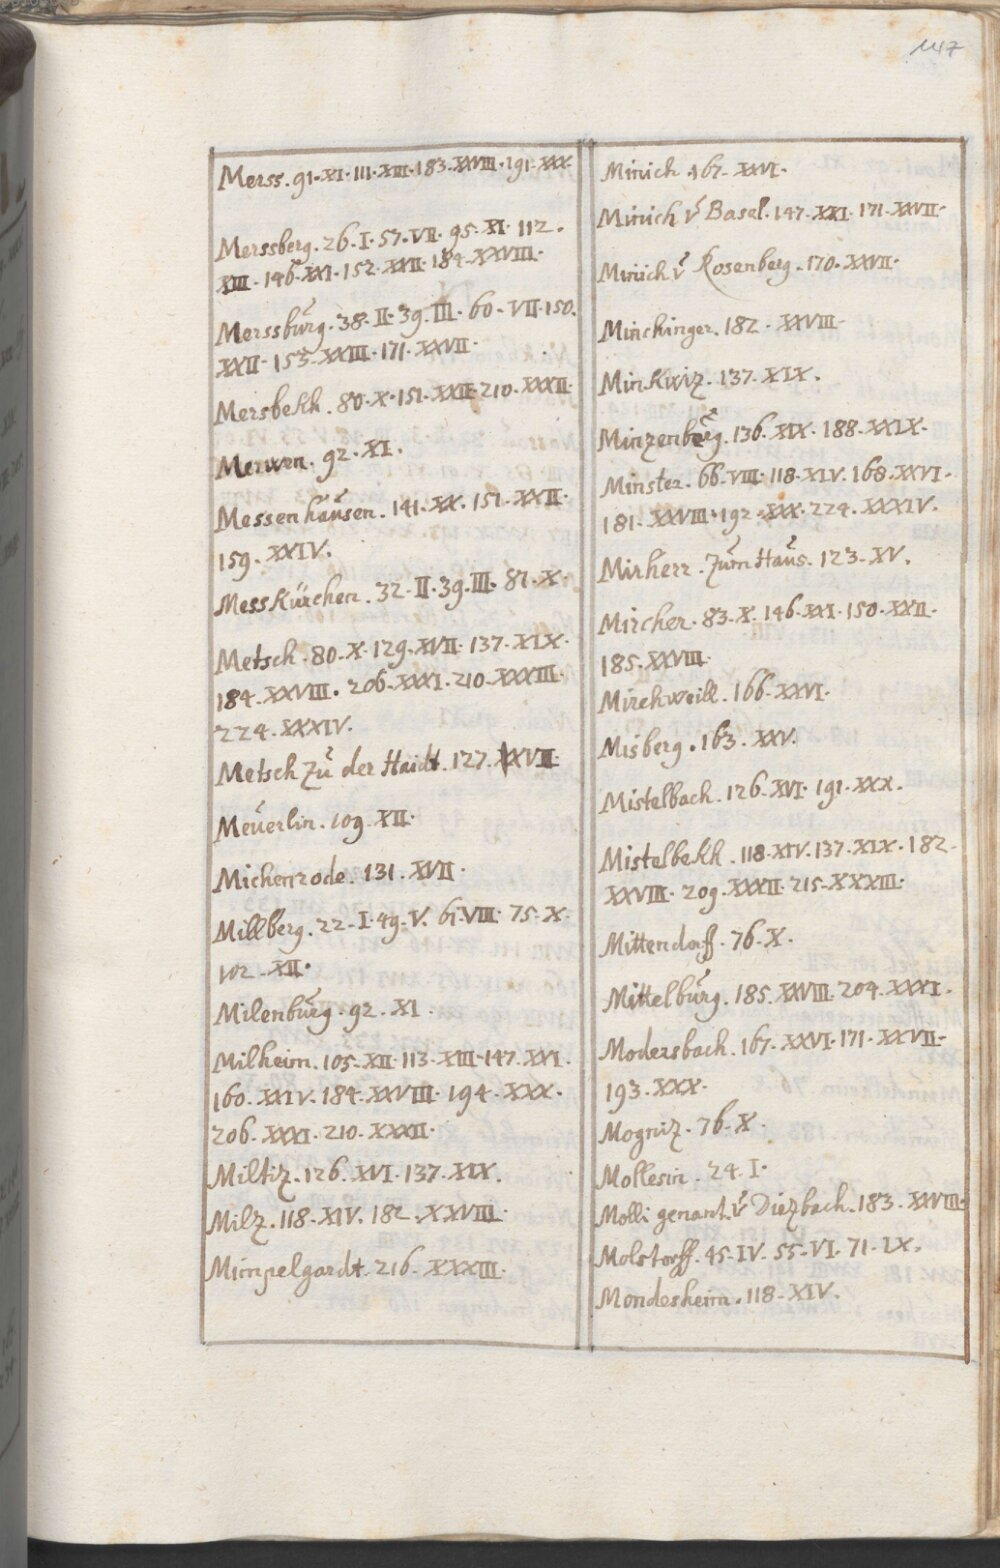 147
Merss. 91. XI. 111. XIII. 183. XXVIII. 191. XXX.
Merssberg. 26. I. 57. VII. 95. XI. 112.
XIII. 146. XXI. 152. XXII. 184. XXVIII.
Merssburg. 38. II. 39. III. 60. VII. 150.
XXII. 153. XXIII. 171. XXVII.
Mersbekh. 80. X. 151. XXII. 210. XXXII.
Merwen. 92. XI.
Messenhausen. 141. XX. 151. XXII.
159. XXIV.
Messkürchen. 32. II. 39. III. 81. X.
Metsch. 80. X. 129. XVII. 137. XIX.
184. XXVIII. 206. XXXI. 210. XXXIII.
224. XXXIV.
Metsch Zu der Haidt. 127. XVII
Meuerlin. 109. XII.
Michenrode. 131. XVII.
Millberg. 22. I. 49. V. 61. VIII. 75. X.
102. XII.
Milenburg. 92. XI.
Milheim. 105. XII. 113. XIII. 147. XXI.
160. XXIV. 184. XXVIII. 194. XXX.
206. XXXI. 210. XXXII.
Miltiz. 126. XVI. 137. XIX.
Milz. 118. XIV. 182. XXVIII.
Mimpelgardt. 216. XXXIII.
Minich. 167. XXVI.
Minich v Basel. 147. XXI. 171. XXVII.
Minich v Rosenberg. 170. XXVII.
Minchinger. 182. XXVIII.
Minkwiz. 137. XIX.
Minzenberg. 136. XIX. 188. XXIX.
Minster. 66. VIII. 118. XIV. 168. XXVI.
181. XXVIII. 192. XXX. 224. XXXIV.
Mirherr. Zum Haus. 123. XV.
Mircher. 83. X. 146. XXI. 150. XXII.
185. XXVIII.
Mirchweill. 166. XXVI.
Misberg. 163. XXV.
Mistelbach. 126. XVI. 191. XXX.
Mistelbekh. 118. XIV. 137. XIX. 182.
XXVIII. 209. XXXII. 215. XXXIII.
Mittendorff. 76. X.
Mittelburg. 185. XXVIII. 204. XXXI.
Modersbach. 167. XXVI. 171. XXVII.
193. XXX.
Mogniz. 76. X.
Mollesin. 24. I.
Molli genant v Diezbach. 183. XXVIII.
Molstorff. 45. IV. 55. VI. 71. IX.
Mondesheim. 118. XIV.